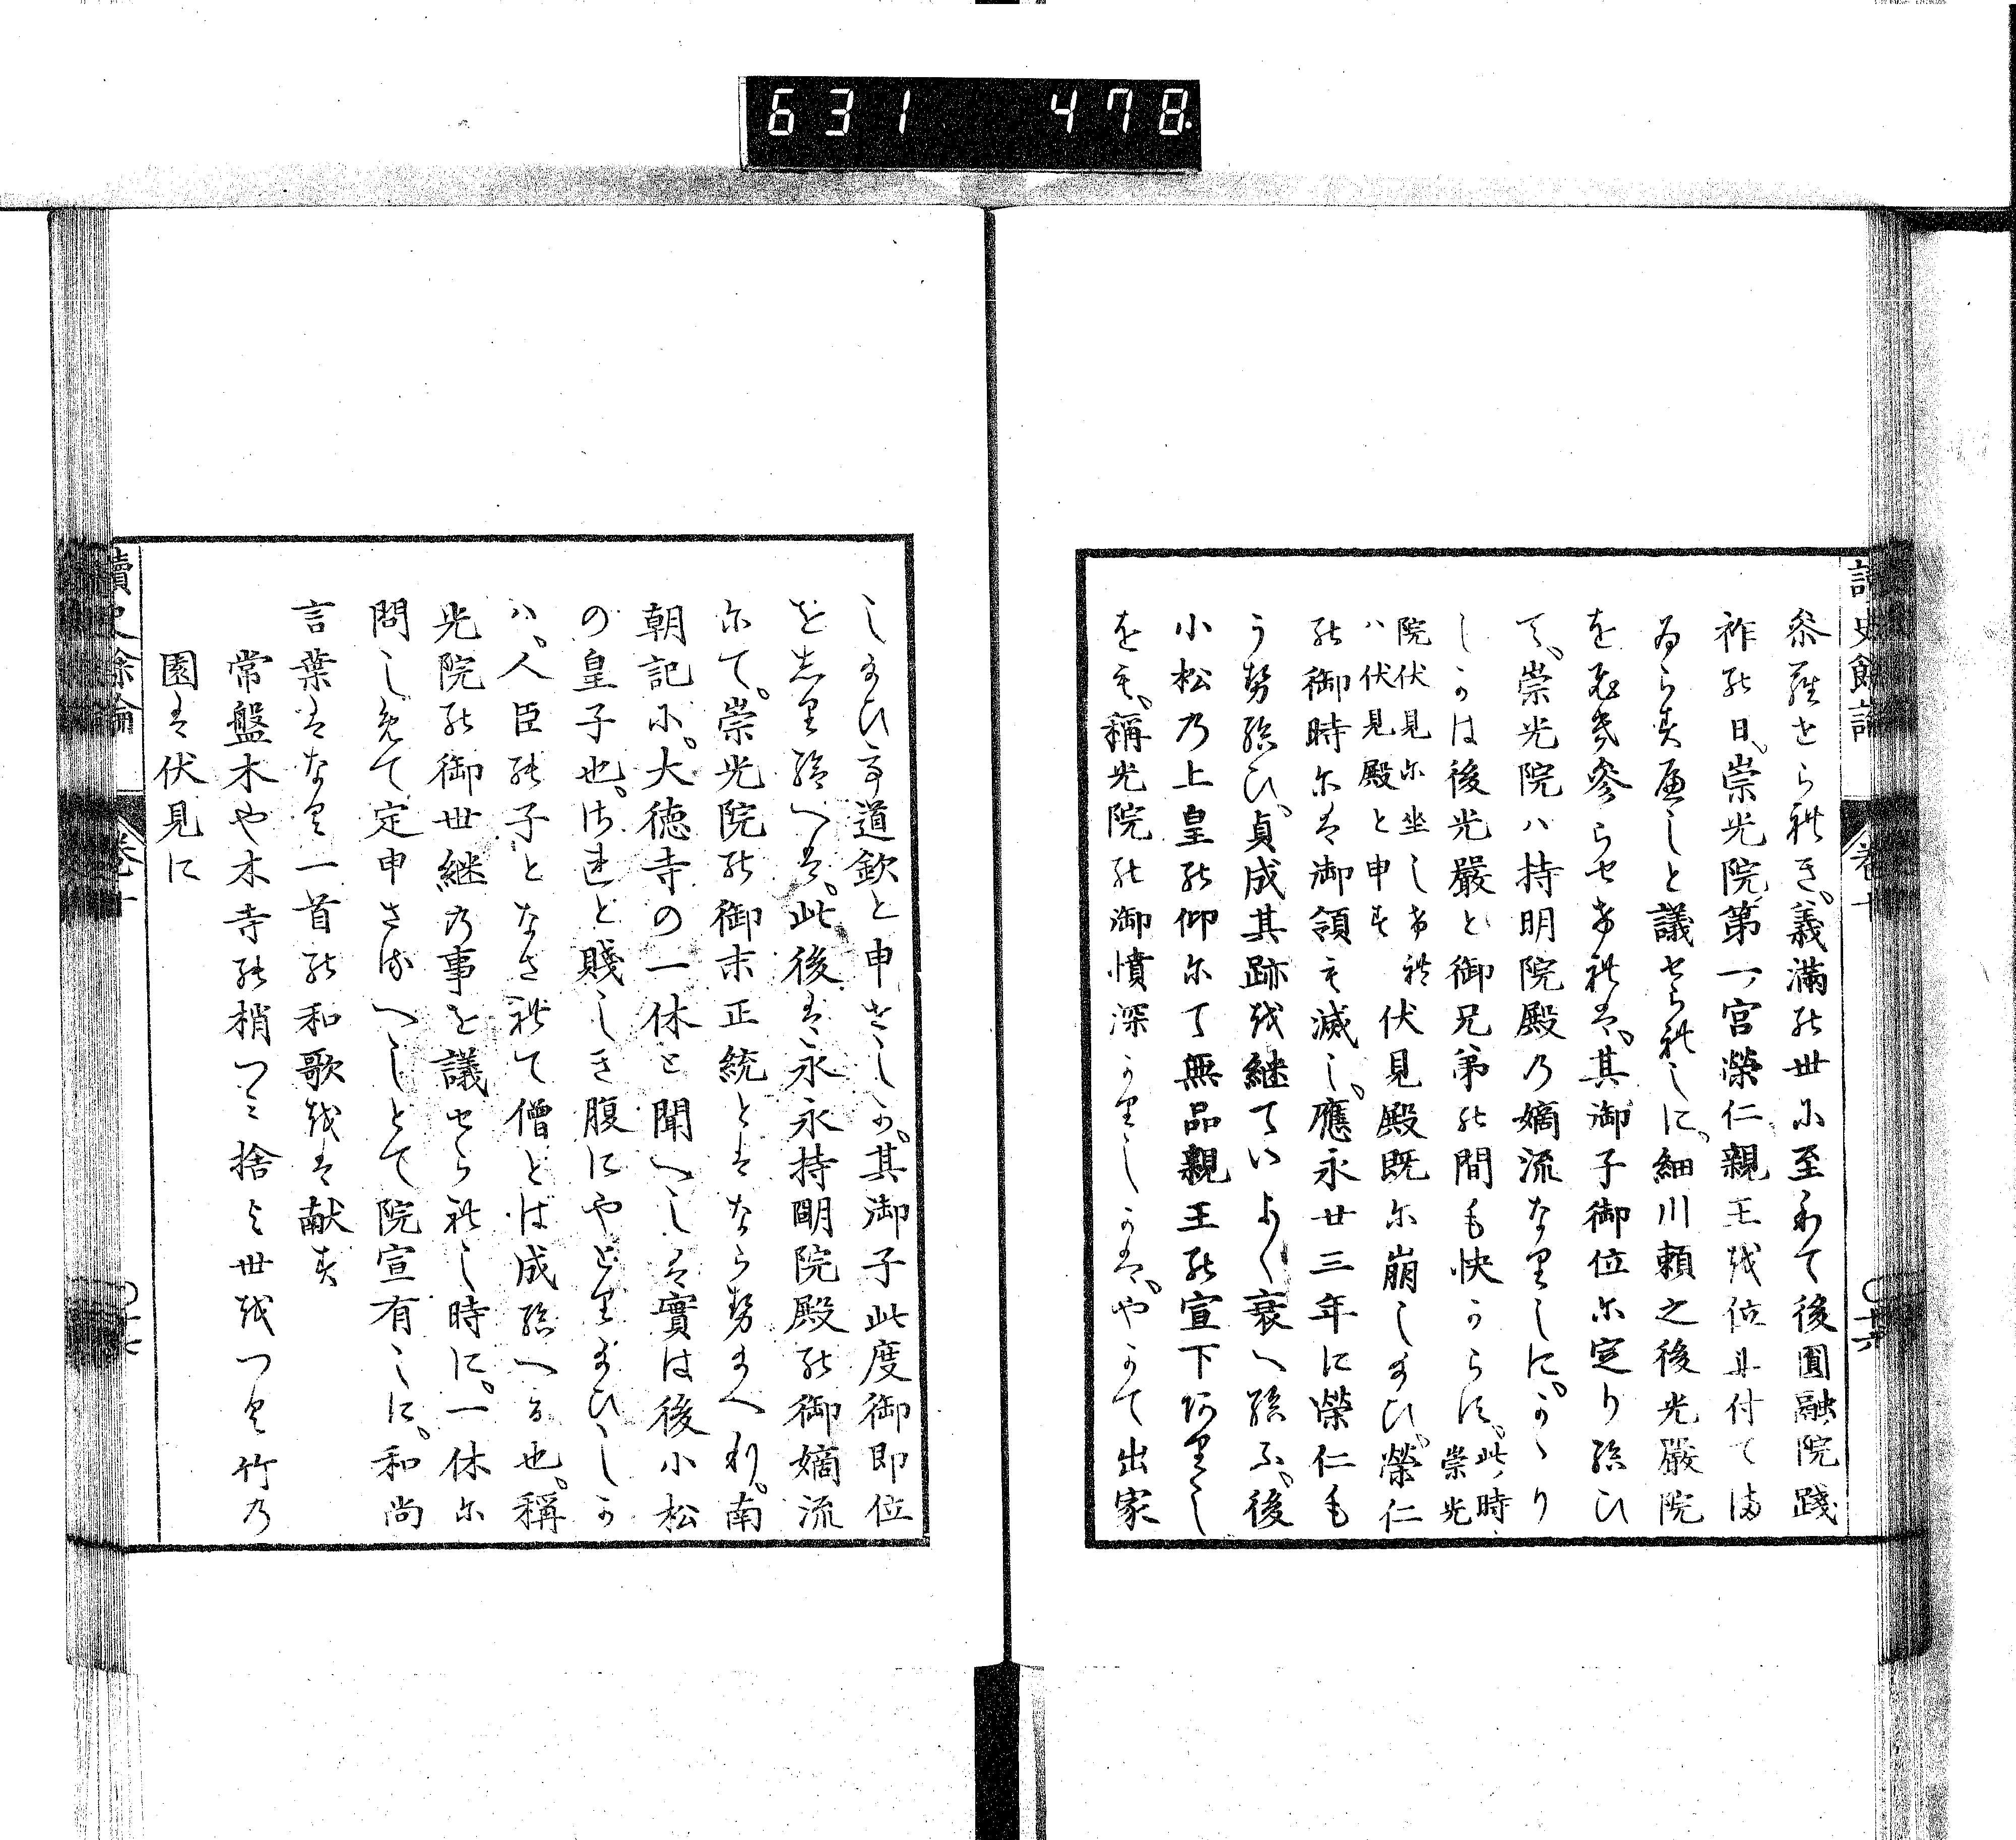 631 478
讀史餘論 卷十 十六
参羅せられき、義滿の世に至りて後圓融院踐
祚の日、崇光院第一宮榮仁親王を位に付てま
ゐらすへしと議せられしに、細川頼之後光嚴院
を
参らせけれは、其御子御位に定り給ひ
て、崇光院ハ持明院殿の嫡流なりしに。かゝり
しかは後光嚴と御兄弟の間も快からす、此時崇光
院伏見に坐しけれハ伏見殿と申す
伏見殿既に崩し給ひ、榮仁
の御時には御領も滅し。應永廿三年に榮仁も
うせ給ひ、貞成其跡を継ていよ〱衰へ給ふ、後
小松の上皇の仰にて無品親王の宣下ありし
をも、稱光院の御憤深かりしかは、やかて出家
し給ひて道欽と申せしか。其御子此度御即位
をしり給へは。此後は永永持明院殿の御嫡流
にて。崇光院の御末正統とはならせ給へり。南
朝記に。大徳寺の一休と聞へしは實は後小松
の皇子也。されと賤しき腹にやとり給ひしか
ハ、人臣の子となされて僧とは成給へる也。稱
光院の御世継の事を議せられし時に。一休に
問しめて定申さるへしとて院宣有しに。和尚
言葉はなく一首の和歌をは献す
常盤木や木寺の梢つみ捨よ世をつく竹の
園は伏見に
讀史餘論 卷十 十七